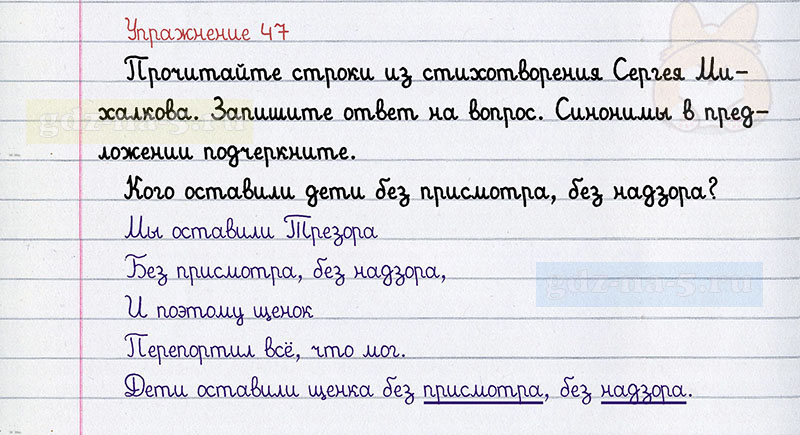 Упражнение 47
Прочитайте строки из стихотворения Сергея Ми-
халкова. Запишите ответ на вопрос. Синонимы в пред-
ложении подчеркните.
Кого оставили дети без присмотра, без надзора?
Мы оставили Трезора
Без присмотра, без надзора,
И поэтому щенок
Перепортил всё, что мог.
Дети оставили щенка без присмотра, без надзора.
gdz-na-5.ru
gdz-na-5.ru